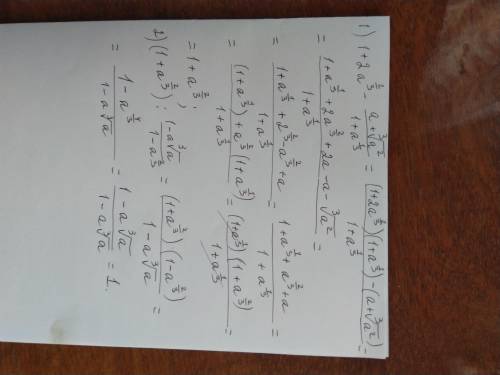 1) 1+2a^{2/3} - (a+∛a²)/(1+a^{1/3}) = ((1+2a^{2/3})(1+a^{1/3})-(a+∛a²))/(1+a^{1/3}) =
= (1+a^{1/3}+2a^{2/3}+2a-a-∛a²)/(1+a^{1/3}) =
= (1+a^{1/3}+2^{2/3}-a^{2/3}+a)/(1+a^{1/3}) = (1+a^{1/3}+a^{2/3}+a)/(1+a^{1/3}) =
= ((1+a^{1/3})+a^{2/3}(1+a^{1/3}))/(1+a^{1/3}) = ((1+a^{1/3})(1+a^{2/3}))/(1+a^{1/3}) =
= 1+a^{2/3};
2) (1+a^{2/3}) : (1-a∛a)/(1-a^{2/3}) = ((1+a^{2/3})(1-a^{2/3}))/(1-a∛a) =
= (1-a^{4/3})/(1-a∛a) = (1-a∛a)/(1-a∛a) = 1.